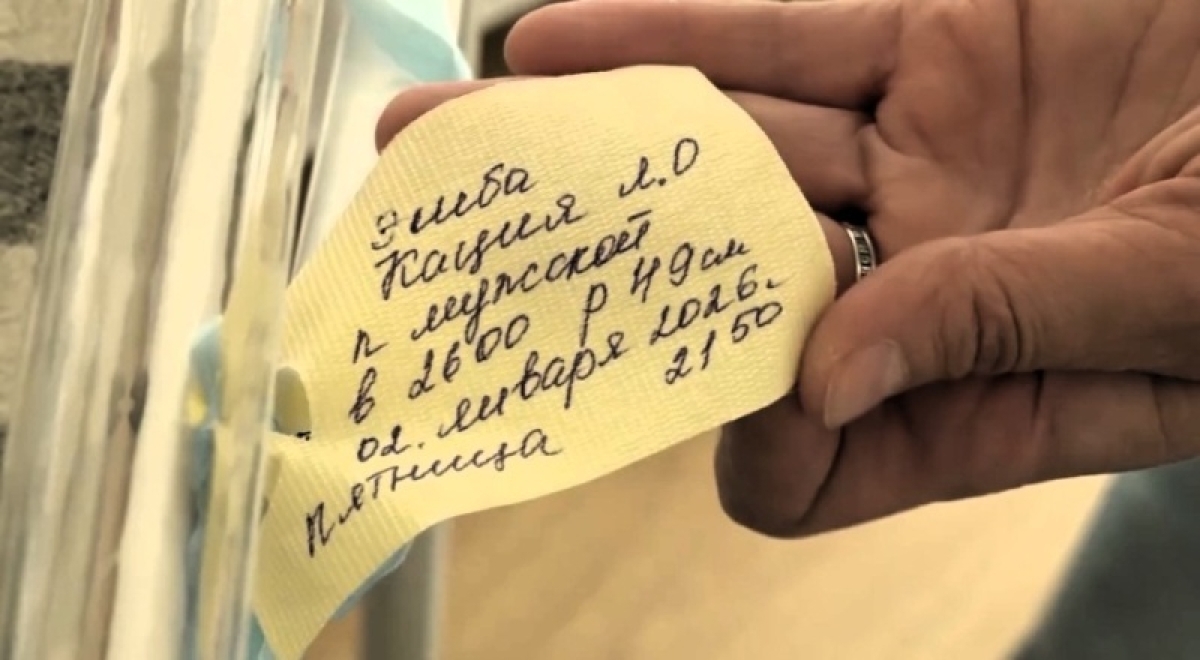 Эшба
Кация Л.О
п мужской
в 2600 р 49см
02. января 2026.
21 50
пятница